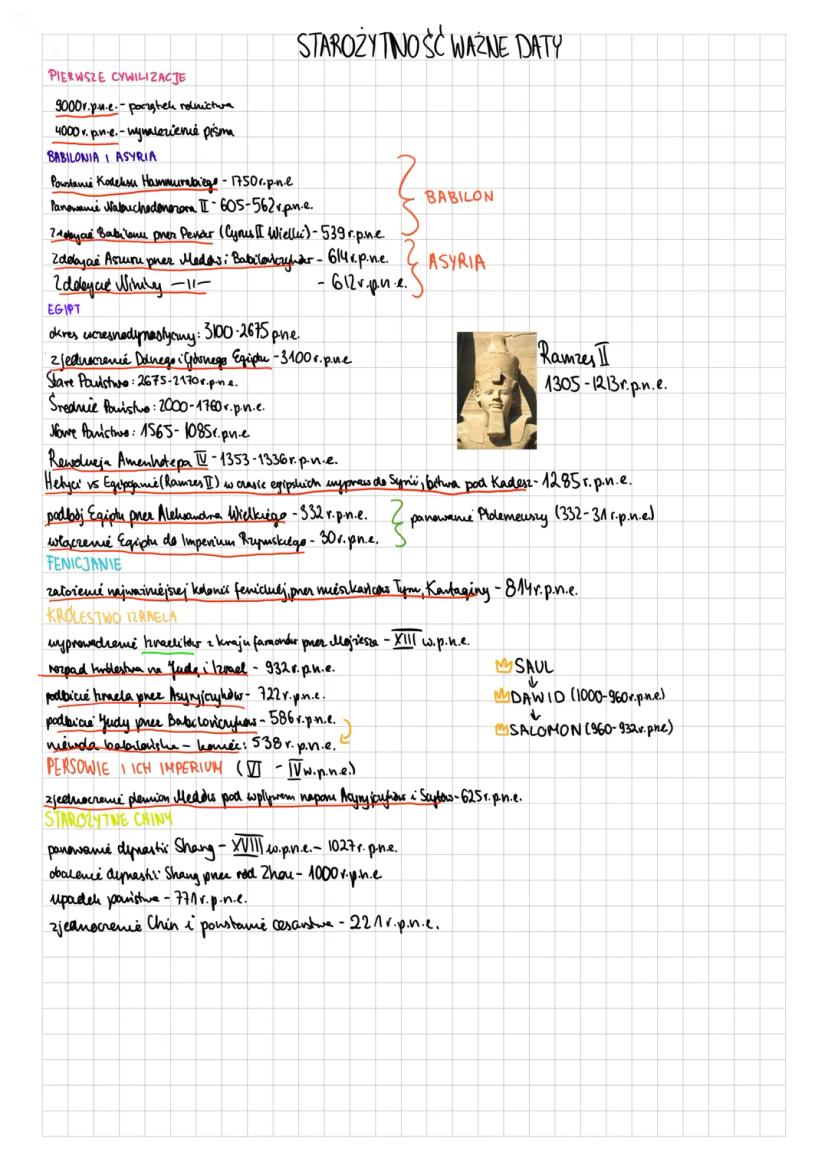 STAROŻYTNOŚĆ WAŻNE DATY
PIERWSZE CYWILIZACJE
9000r.p.n.e. - początek rolnictwa
4000 r. p.n.e. - wynalezienie pisma
BABILONIA I ASYRIA
Powstanie Kodeksu Hammurabiego - 1750r.p.n.e
Panowanie Nabuchodonozora II - 605-562r.p.n.e.
Zdobycie Babilonu przez Persów (Cyrus II Wielki) - 539r.p.n.e.
BABILON
Zdobycie Assuru przez Medów i Babilończyków - 614r.p.n.e.
Zdobycie Niniwy —11— - 612r.p.n.e.
ASYRIA
EGIPT
okres wczesnodynastyczny: 3100-2675 p.n.e.
zjednoczenie Dolnego i Górnego Egiptu - 3100r.p.n.e
Stare Państwo: 2675-2170r.p.n.e.
Średnie Państwo: 2000-1760r.p.n.e.
Nowe Państwo: 1565-1085r.p.n.e
Ramzes II
1305-1213r.p.n.e.
Rewolucja Amenhotepa IV - 1353-1336r.p.n.e.
Hetyci vs Egipcjanie (Ramzes II) w czasie egipskich wypraw do Syrii, bitwa pod Kadesz - 1285r.p.n.e.
podbój Egiptu przez Aleksandra Wielkiego - 332r.p.n.e.
włączenie Egiptu do Imperium Rzymskiego - 30r.p.n.e.
panowanie Ptolemeuszy (332-31r.p.n.e.)
FENICJANIE
założenie najważniejszej kolonii fenickiej, przez mieszkańców Tyru, Kartaginy - 814r.p.n.e.
KRÓLESTWO IZRAELA
wyprowadzenie Izraelitów z kraju faraonów przez Mojżesza - XIII w.p.n.e.
rozpad królestwa na Judę i Izrael - 932r.p.n.e.
podbicie Izraela przez Asyryjczyków - 722r.p.n.e.
podbicie Judy przez Babilończyków - 586r.p.n.e.
niewola babilońska - koniec: 538r.p.n.e.
SAUL
DAWID (1000-960r.p.n.e)
SALOMON (960-932r.p.n.e)
PERSOWIE I ICH IMPERIUM (VI - IV w.p.n.e.)
zjednoczenie plemion Medów pod wpływem naporu Asyryjczyków i Scytów - 625r.p.n.e.
STAROŻYTNE CHINY
panowanie dynastii Shang - XVIII w.p.n.e. - 1027r.p.n.e.
obalenie dynastii Shang przez ród Zhou - 1000r.p.n.e
upadek państwa - 771r.p.n.e.
zjednoczenie Chin i powstanie cesarstwa - 221r.p.n.e.